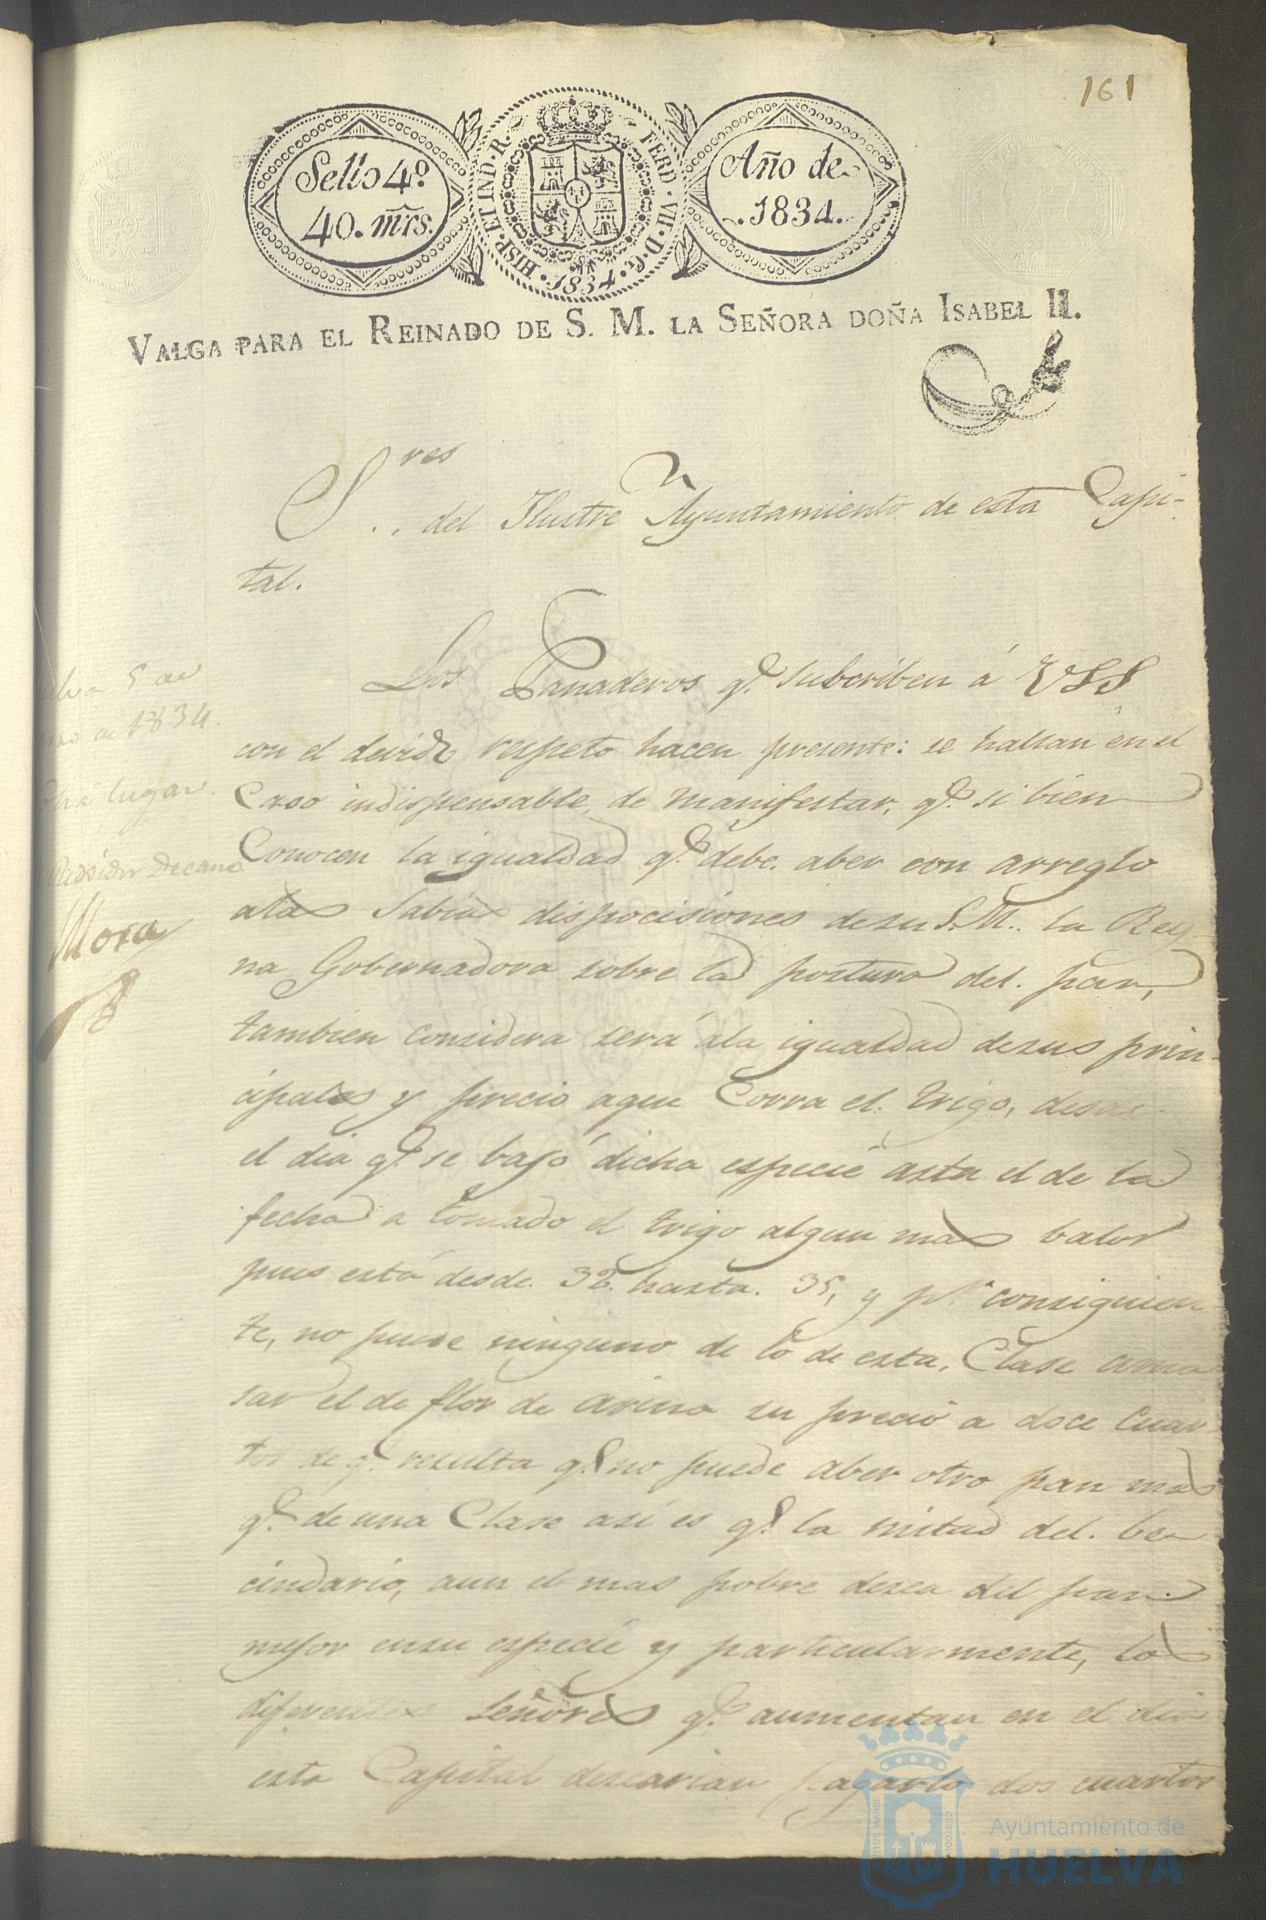 161
Sello 4º
40. mrs.
HISP. ET IND. R. FERD. VII. D. G. 1834.
Año de
1834.
VALGA PARA EL REINADO DE S. M. LA SEÑORA DOÑA ISABEL II.
Sres
del Ilustre Ayuntamiento de esta Capi-
tal.
Los Panaderos q.e subcriben á VSS
con el devido respeto hacen presente: se hallan en el
Caso indispensable, de manifestar, q.e si bien
Conocen la igualdad q.e debe. aber con arreglo
alas Sabias dispocisiones de su S.M. la Rey-
na Gobernadora sobre la postura del. pan,
tambien considera será ala igualdad desus prin-
cipales y precio aque Corra el. trigo, desde
el dia q.e se bajó dicha especie asta el de la
fecha a tomado el trigo algun mas balor
pues está desde. 32. hasta. 35, y p.r consiguien-
te, no puede ninguno de lo de esta. Clase ama
sar el de flor de arina su precio a doce Cuar-
tos de q.e resulta q.e no puede aber otro pan mas
q.e de una Clase asi es q.e la mitad del. be-
cindario, aun el mas pobre desea del pan
mejor ensu especie y particularmente, los
diferentes señores q.e aumentan en el dia
esta Capital desearian pagarlo dos cuartos
5 de
de 1834.
lugar.
Decano
Mora
Ayuntamiento de
HUELVA